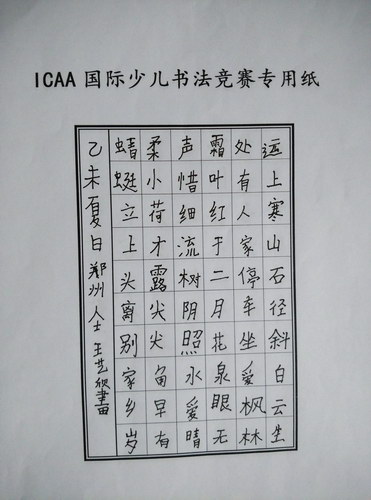 ICAA 国际少儿书法竞赛专用纸
远上寒山石径斜白云生
处有人家停车坐爱枫林
霜叶红于二月花泉眼无
声惜细流树阴照水爱晴
柔小荷才露尖尖角早有
蜻蜓立上头离别家乡岁
乙未夏日郑州人士王艺